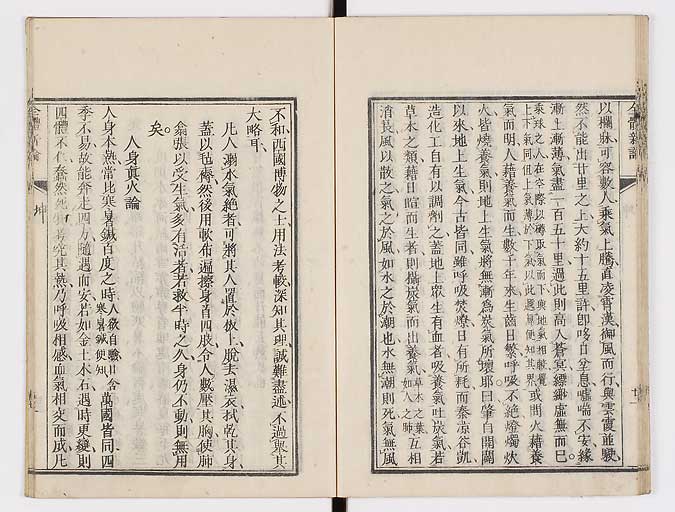 全體新論
以欄牀可容數人乘氣上騰直凌霄漢御風而行與雲霞並駛
然不能出廿里之上大約十五里許卽咳日坌息噓喘不安緣
漸上漸薄氣盡一百五十里過此則高人蒼冥縹緲虛無而已
乘球之人在空際以罇取氣而下與地氣相較覺
上下氣同但上氣薄於下氣以此遞算便知其界
或問火藉養
氣而明人藉養氣而生數千年來生齒日繁呼吸不絕燈燭炊
火皆燒養氣則地上生氣將無漸爲炭氣所壞耶曰肇自開闢
以來地上生氣今古皆同雖呼吸焚燎日有所耗而泰涼谷凱
造化工自有以調劑之蓋地上眾生有血者吸養氣吐炭氣若
草木之類藉日暄而生者則攝炭氣而出養氣
草木之葉
如人之肺
互相
消長風以散之氣之於風如水之於潮也水無潮則死氣無風
不和西國博物之士用法考較深知其理誠難盡述不過舉其
大略耳
凡人溺水氣絕者可將其人置於板上脫去濕衣拭乾其身
蓋以毡褥然後用軟布遍擦身首四肢令人數壓其胸使肺
翕張以受生氣多有活者若救半時之久身仍不動則無用
矣
人身真火論
人身本熱常比寒暑鍼百度之時
人欲自驗口含
寒暑鍼便知
萬國皆同四
季不易故能奔走四方隨遇而安若如金土木石遇時更變則
四體不仁蠢然死
究其熱乃呼吸相感血氣相交而成凡
坤